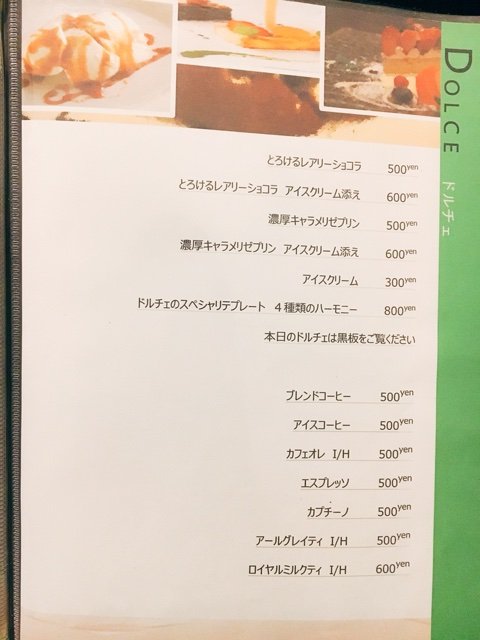 DOLCE ドルチェ
とろけるレアリーショコラ 500yen
とろけるレアリーショコラ アイスクリーム添え 600yen
濃厚キャラメリゼプリン 500yen
濃厚キャラメリゼプリン アイスクリーム添え 600yen
アイスクリーム 300yen
ドルチェのスペシャリテプレート 4種類のハーモニー 800yen
本日のドルチェは黒板をご覧ください
ブレンドコーヒー 500yen
アイスコーヒー 500yen
カフェオレ I/H 500yen
エスプレッソ 500yen
カプチーノ 500yen
アールグレイティ I/H 500yen
ロイヤルミルクティ I/H 600yen